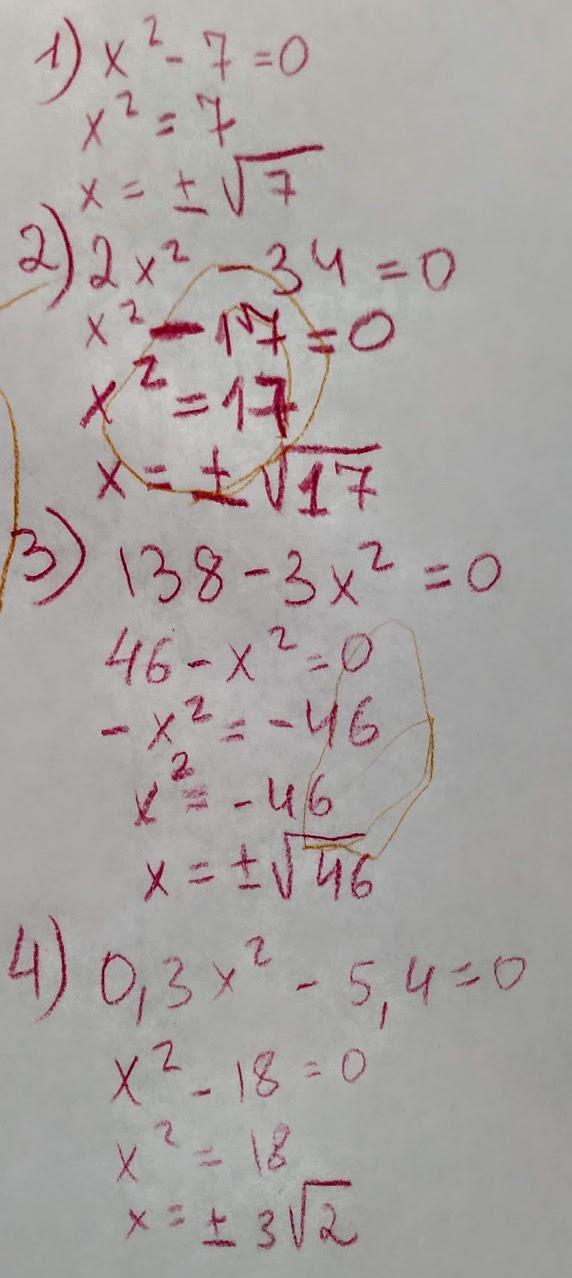 1) x² - 7 = 0
x² = 7
x = ± √7
2) 2x² - 34 = 0
x² - 17 = 0
x² = 17
x = ± √17
3) 138 - 3x² = 0
46 - x² = 0
- x² = - 46
x² = - 46
x = ± √46
4) 0,3x² - 5,4 = 0
x² - 18 = 0
x² = 18
x = ± 3√2